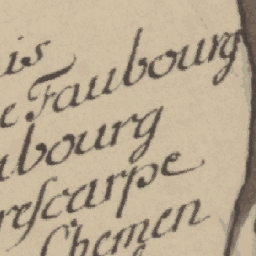 is
e Faubourg
ubourg
rescarpe
Chemen